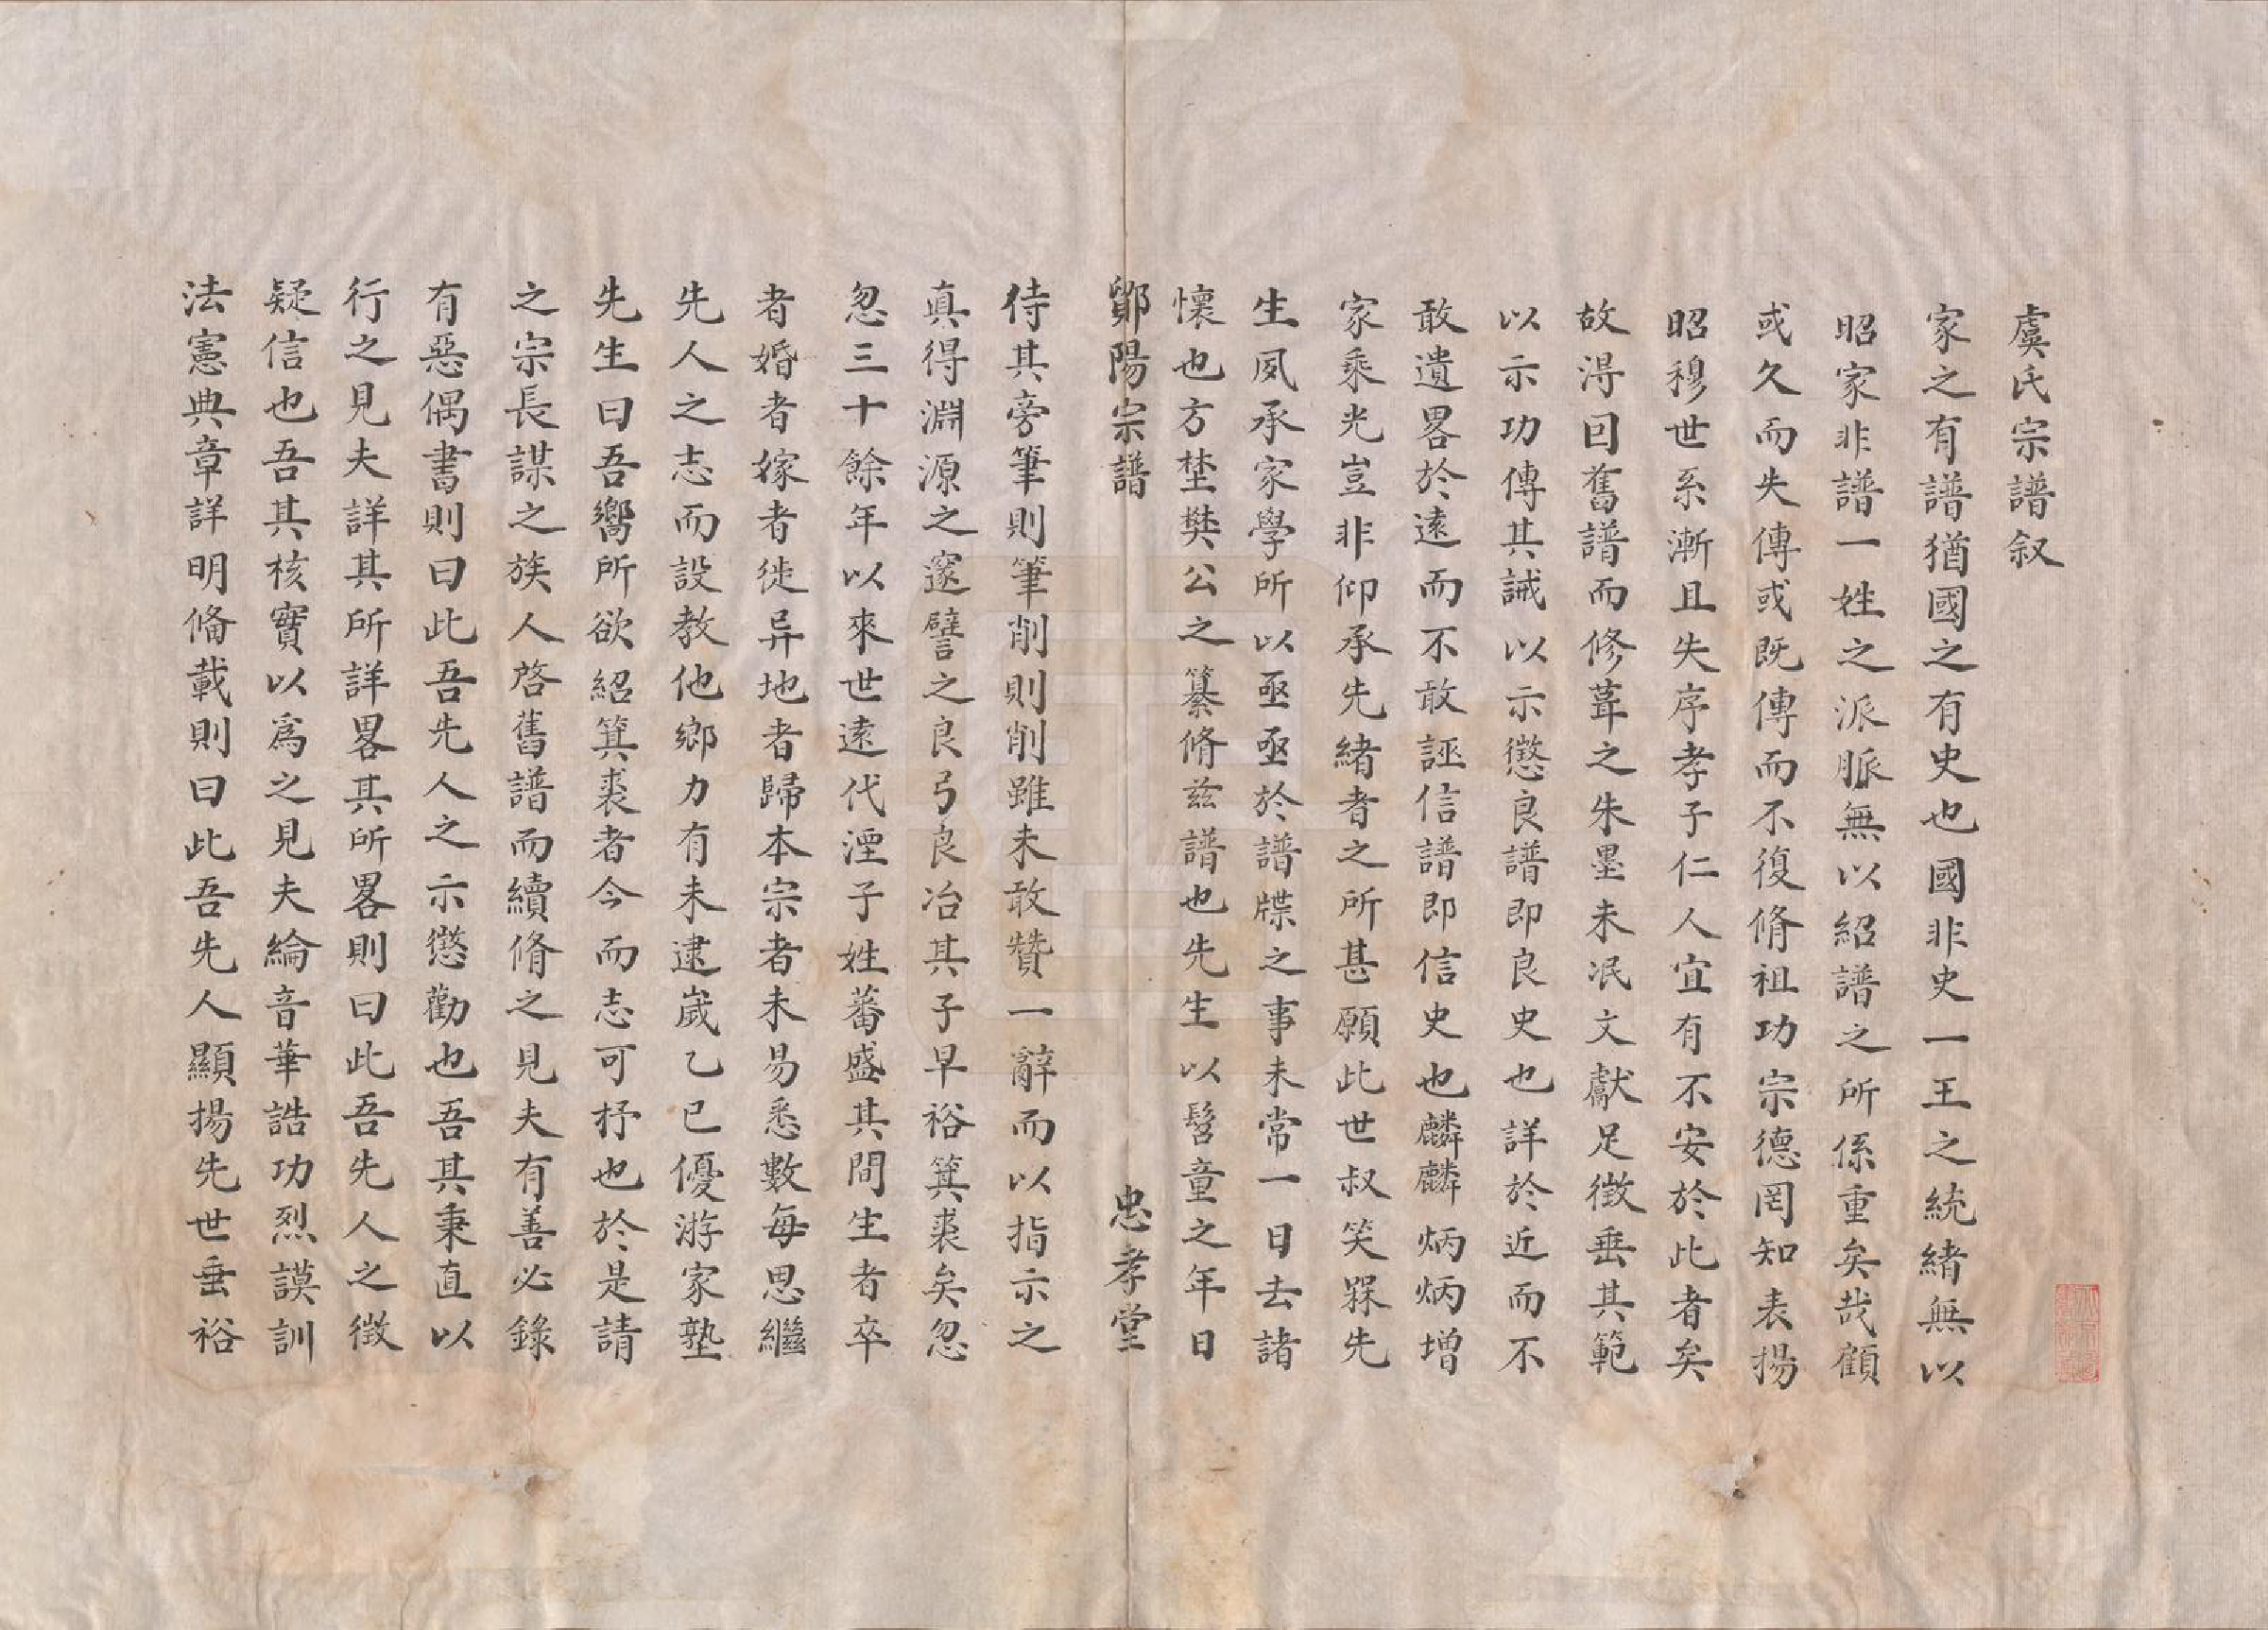 虞氏宗譜叙
家之有譜猶國之有史也國非史一王之統緒無以
昭家非譜一姓之派脈無以紹譜之所係重矣哉顧
或久而失傳或既傳而不復脩祖功宗德罔知表揚
昭穆世系漸且失序孝子仁人宜有不安於此者矣
故淂囙舊譜而修葺之朱墨未泯文獻足徵垂其範
以示功傳其誡以示懲良譜即良史也詳於近而不
敢遺畧於逺而不敢誣信譜即信史也麟麟炳炳增
家乘光豈非仰承先緒者之所甚願此世叔笑槑先
生夙承家學所以亟亟於譜牒之事未常一日去諸
懷也方埜樊公之纂脩兹譜也先生以髫童之年日
鄮陽宗譜　忠孝堂
侍其旁筆則筆削則削雖未敢贊一辭而以指示之
真得淵源之邃譬之良弓良冶其子早裕箕裘矣忽
忽三十餘年以來世逺代湮子姓蕃盛其間生者卒
者婚者嫁者徙异地者歸本宗者未易悉數每思繼
先人之志而設教他鄉力有未逮歲乙巳優游家塾
先生曰吾嚮所欲紹箕裘者今而志可抒也於是請
之宗長謀之族人啓舊譜而續脩之見夫有善必錄
有惡偶書則曰此吾先人之示懲勸也吾其秉直以
行之見夫詳其所詳畧其所畧則曰此吾先人之徵
疑信也吾其核實以爲之見夫綸音華誥功烈謨訓
法憲典章詳明備載則曰此吾先人顯揚先世垂裕